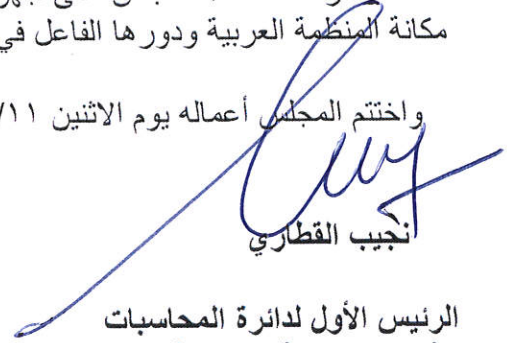 مكانة المنظمة العربية ودورها الفاعل في
واختتم المجلس أعماله يوم الاثنين ١١/
نجيب القطاري
الرئيس الأول لدائرة المحاسبات